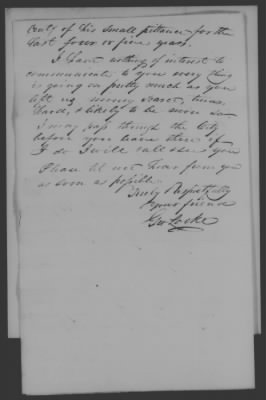 only of this small pittance for the
last four or five years.
I have nothing of interest to
communicate to you every thing
is going on pretty much as you
left us money scarce, times
Hard, & likely to be more so
I may pass through the City
before you leave there if
I do I will call & see you
Please let me hear from you
as soon as possible
Truly & Respectfully
Your friend
Geo Locke